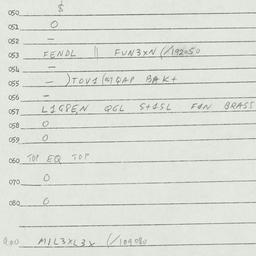 050 $
051 O
052 –
053 FENDL || FUN3XN (/192050
054 –
055 – ) TOV1 (
056 –
057 L1GPEN QGL S+1SL FAN BRAST
058 O
059 O
060 TOP EQ TOP
070 O
080 O
900 MIL3XL3X (/109080